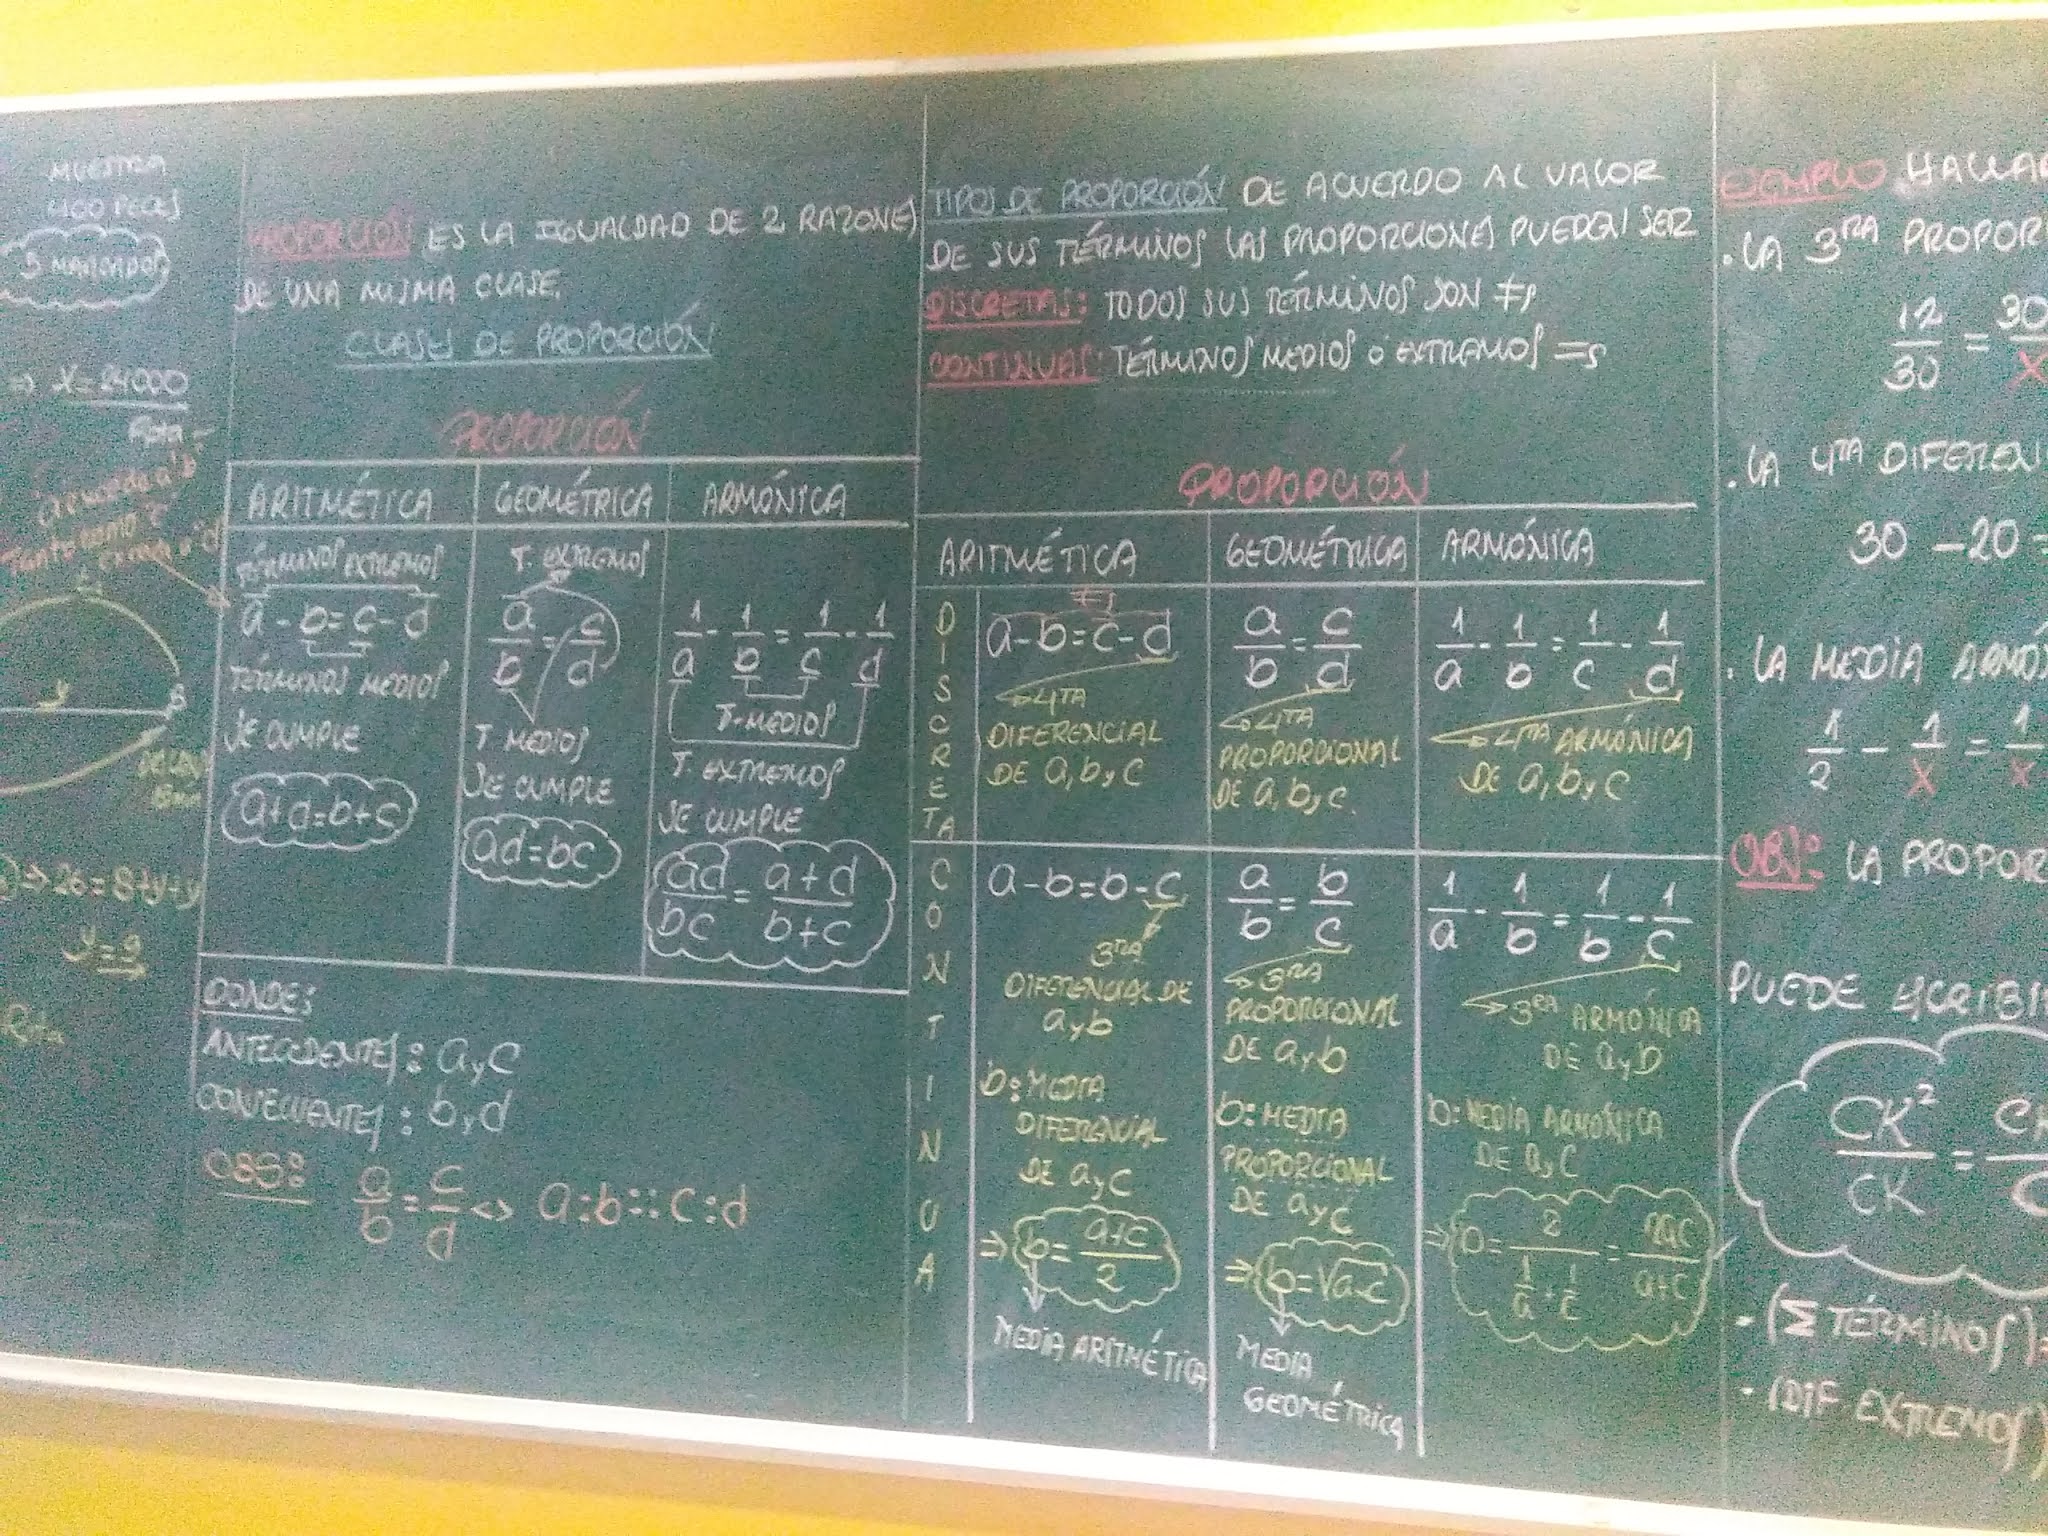 MUESTRA
400 PECES
5 MARCADOS
⇒ X = 24000
Rpta
⇒ 26 = 8+y+y
y = 9
Rpta
PROPORCIÓN ES LA IGUALDAD DE 2 RAZONES
DE UNA MISMA CLASE.
CLASES DE PROPORCIÓN
PROPORCIÓN
ARITMÉTICA GEOMÉTRICA ARMÓNICA
TÉRMINOS EXTREMOS
a - b = c - d
TÉRMINOS MEDIOS
SE CUMPLE
a+d=b+c
T. EXTREMOS
a/b = c/d
T. MEDIOS
SE CUMPLE
ad=bc
1/a - 1/b = 1/c - 1/d
T. MEDIOS
T. EXTREMOS
SE CUMPLE
ad/bc = a+d/b+c
DONDE:
ANTECEDENTES: a y c
CONSECUENTES: b y d
OBS: a/b = c/d ⇔ a:b::c:d
TIPOS DE PROPORCIÓN DE ACUERDO AL VALOR
DE SUS TÉRMINOS LAS PROPORCIONES PUEDEN SER
DISCRETAS: TODOS SUS TÉRMINOS SON ≠s
CONTINUAS: TÉRMINOS MEDIOS O EXTREMOS =s
PROPORCIÓN
ARITMÉTICA GEOMÉTRICA ARMÓNICA
DISCRETA
≠s
a-b=c-d
4TA
DIFERENCIAL
DE a, b y c
a/b = c/d
4TA
PROPORCIONAL
DE a, b y c.
1/a - 1/b = 1/c - 1/d
4TA ARMÓNICA
DE a, b y c
CONTINUA
a-b=b-c
3RA
DIFERENCIAL DE
a y b
b: MEDIA
DIFERENCIAL
DE a y c
⇒ b = a+c/2
MEDIA ARITMÉTICA
a/b = b/c
3RA
PROPORCIONAL
DE a y b
b: MEDIA
PROPORCIONAL
DE a y c
⇒ b=√a.c
MEDIA
GEOMÉTRICA
1/a - 1/b = 1/b - 1/c
3RA ARMÓNICA
DE a y b
b: MEDIA ARMÓNICA
DE a y c
⇒ b = 2/(1/a + 1/c) = 2ac/a+c
EJEMPLO HALLAR
. LA 3RA PROPOR
12/30 = 30/x
. LA 4TA DIFEREN
30 - 20 =
. LA MEDIA ARMÓ
1/2 - 1/x = 1/x
OBS: LA PROPOR
PUEDE ESCRIBI
CK²/CK =
- (Σ TÉRMINOS)=
- (DIF EXTREMOS)